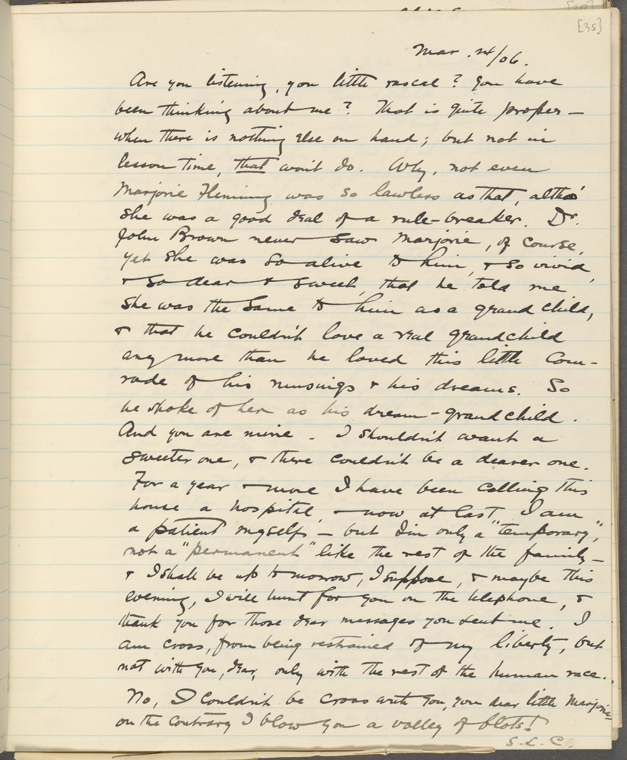 [35]
Mar. 24/06.
Are you listening, you little rascal? You have
been thinking about me? That is quite proper —
when there is nothing else on hand; but not in
lesson time, that won't do. Why, not even
Marjorie Fleming was so lawless as that, altho'
she was a good deal of a rule-breaker. Dr.
John Brown never saw Marjorie, of course,
yet she was so alive to him, & so vivid,
& so dear & sweet, that he told me
she was the same to him as a grandchild,
& that he couldn't love a real grandchild
any more than he loved this little com-
rade of his musings & his dreams. So
he spoke of her as his dream-grandchild.
And you are mine. I shouldn't want a
sweeter one, & there couldn't be a dearer one.
For a year & more I have been calling this
house a hospital, & now at last I am
a patient myself — but I'm only a "temporary,"
not a "permanent" like the rest of the family —
& I shall be up to-morrow, I suppose, & maybe this
evening, I will hunt for you on the telephone, &
thank you for those dear messages you sent me. I
am cross, from being restrained of my liberty, but
not with you, dear, only with the rest of the human race.
No, I couldn't be cross with you, you dear little Marjorie
on the contrary I blow you a volley of blots!
S. L. C.